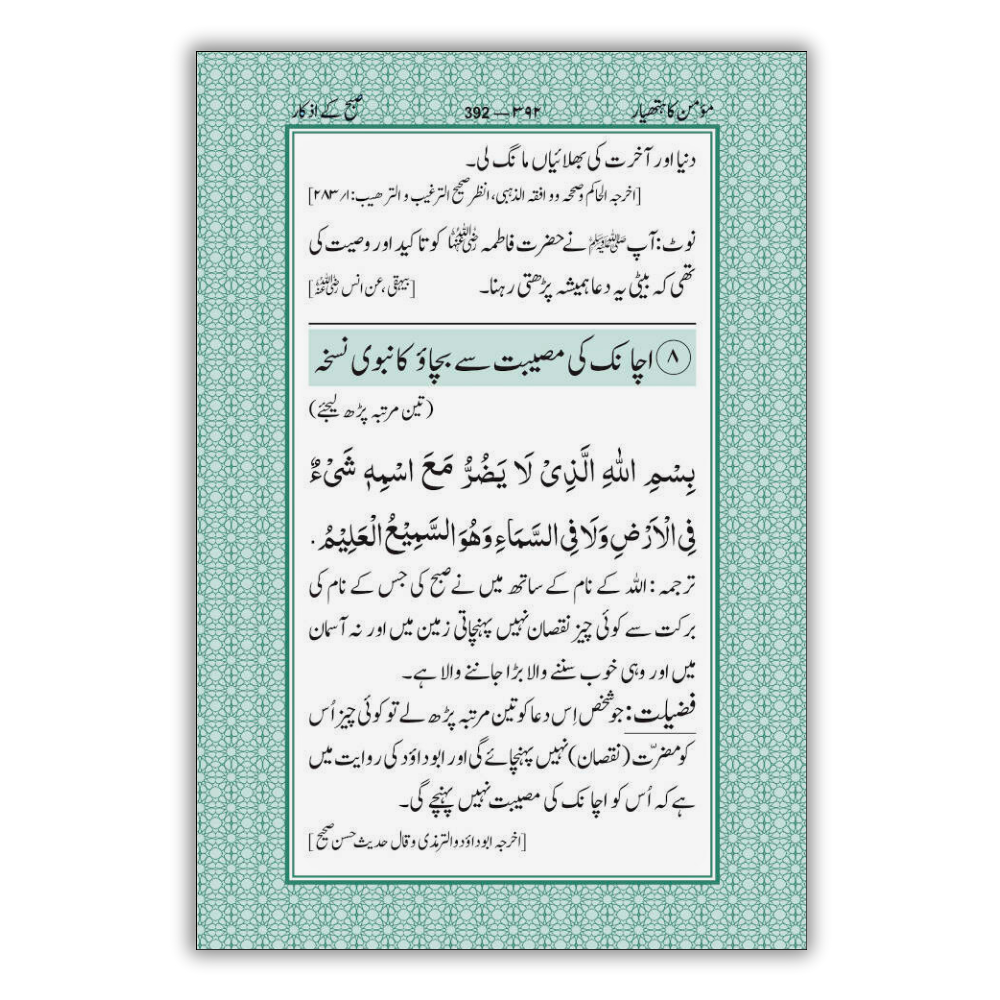 مؤمن کا ہتھیار ۳۹۲ — 392 صبح کے اذکار
دنیا اور آخرت کی بھلائیاں مانگ لی۔
[اخرجہ الحاکم وصححہ ووافقہ الذہبی، انظر صحیح الترغیب والترھیب: ۱/ ۲۸۳]
نوٹ: آپ ﷺ نے حضرت فاطمہ رضی اللہ عنہا کو تاکید اور وصیت کی
تھی کہ بیٹی یہ دعا ہمیشہ پڑھتی رہنا۔ [بیہقی، عن انس رضی اللہ عنہ]
۸ اچانک کی مصیبت سے بچاؤ کا نبوی نسخہ
(تین مرتبہ پڑھ لیجئے)
بِسْمِ اللهِ الَّذِیْ لَا یَضُرُّ مَعَ اسْمِهٖ شَیْءٌ
فِی الْاَرْضِ وَلَا فِی السَّمَاءِ وَهُوَ السَّمِیْعُ الْعَلِیْمُ.
ترجمہ: اللہ کے نام کے ساتھ میں نے صبح کی جس کے نام کی
برکت سے کوئی چیز نقصان نہیں پہنچاتی زمین میں اور نہ آسمان
میں اور وہی خوب سننے والا بڑا جاننے والا ہے۔
فضیلت: جو شخص اِس دعا کو تین مرتبہ پڑھ لے تو کوئی چیز اُس
کو مضرّت (نقصان) نہیں پہنچائے گی اور ابوداؤد کی روایت میں
ہے کہ اُس کو اچانک کی مصیبت نہیں پہنچے گی۔
[اخرجہ ابوداؤد والترمذی وقال حدیث حسن صحیح]